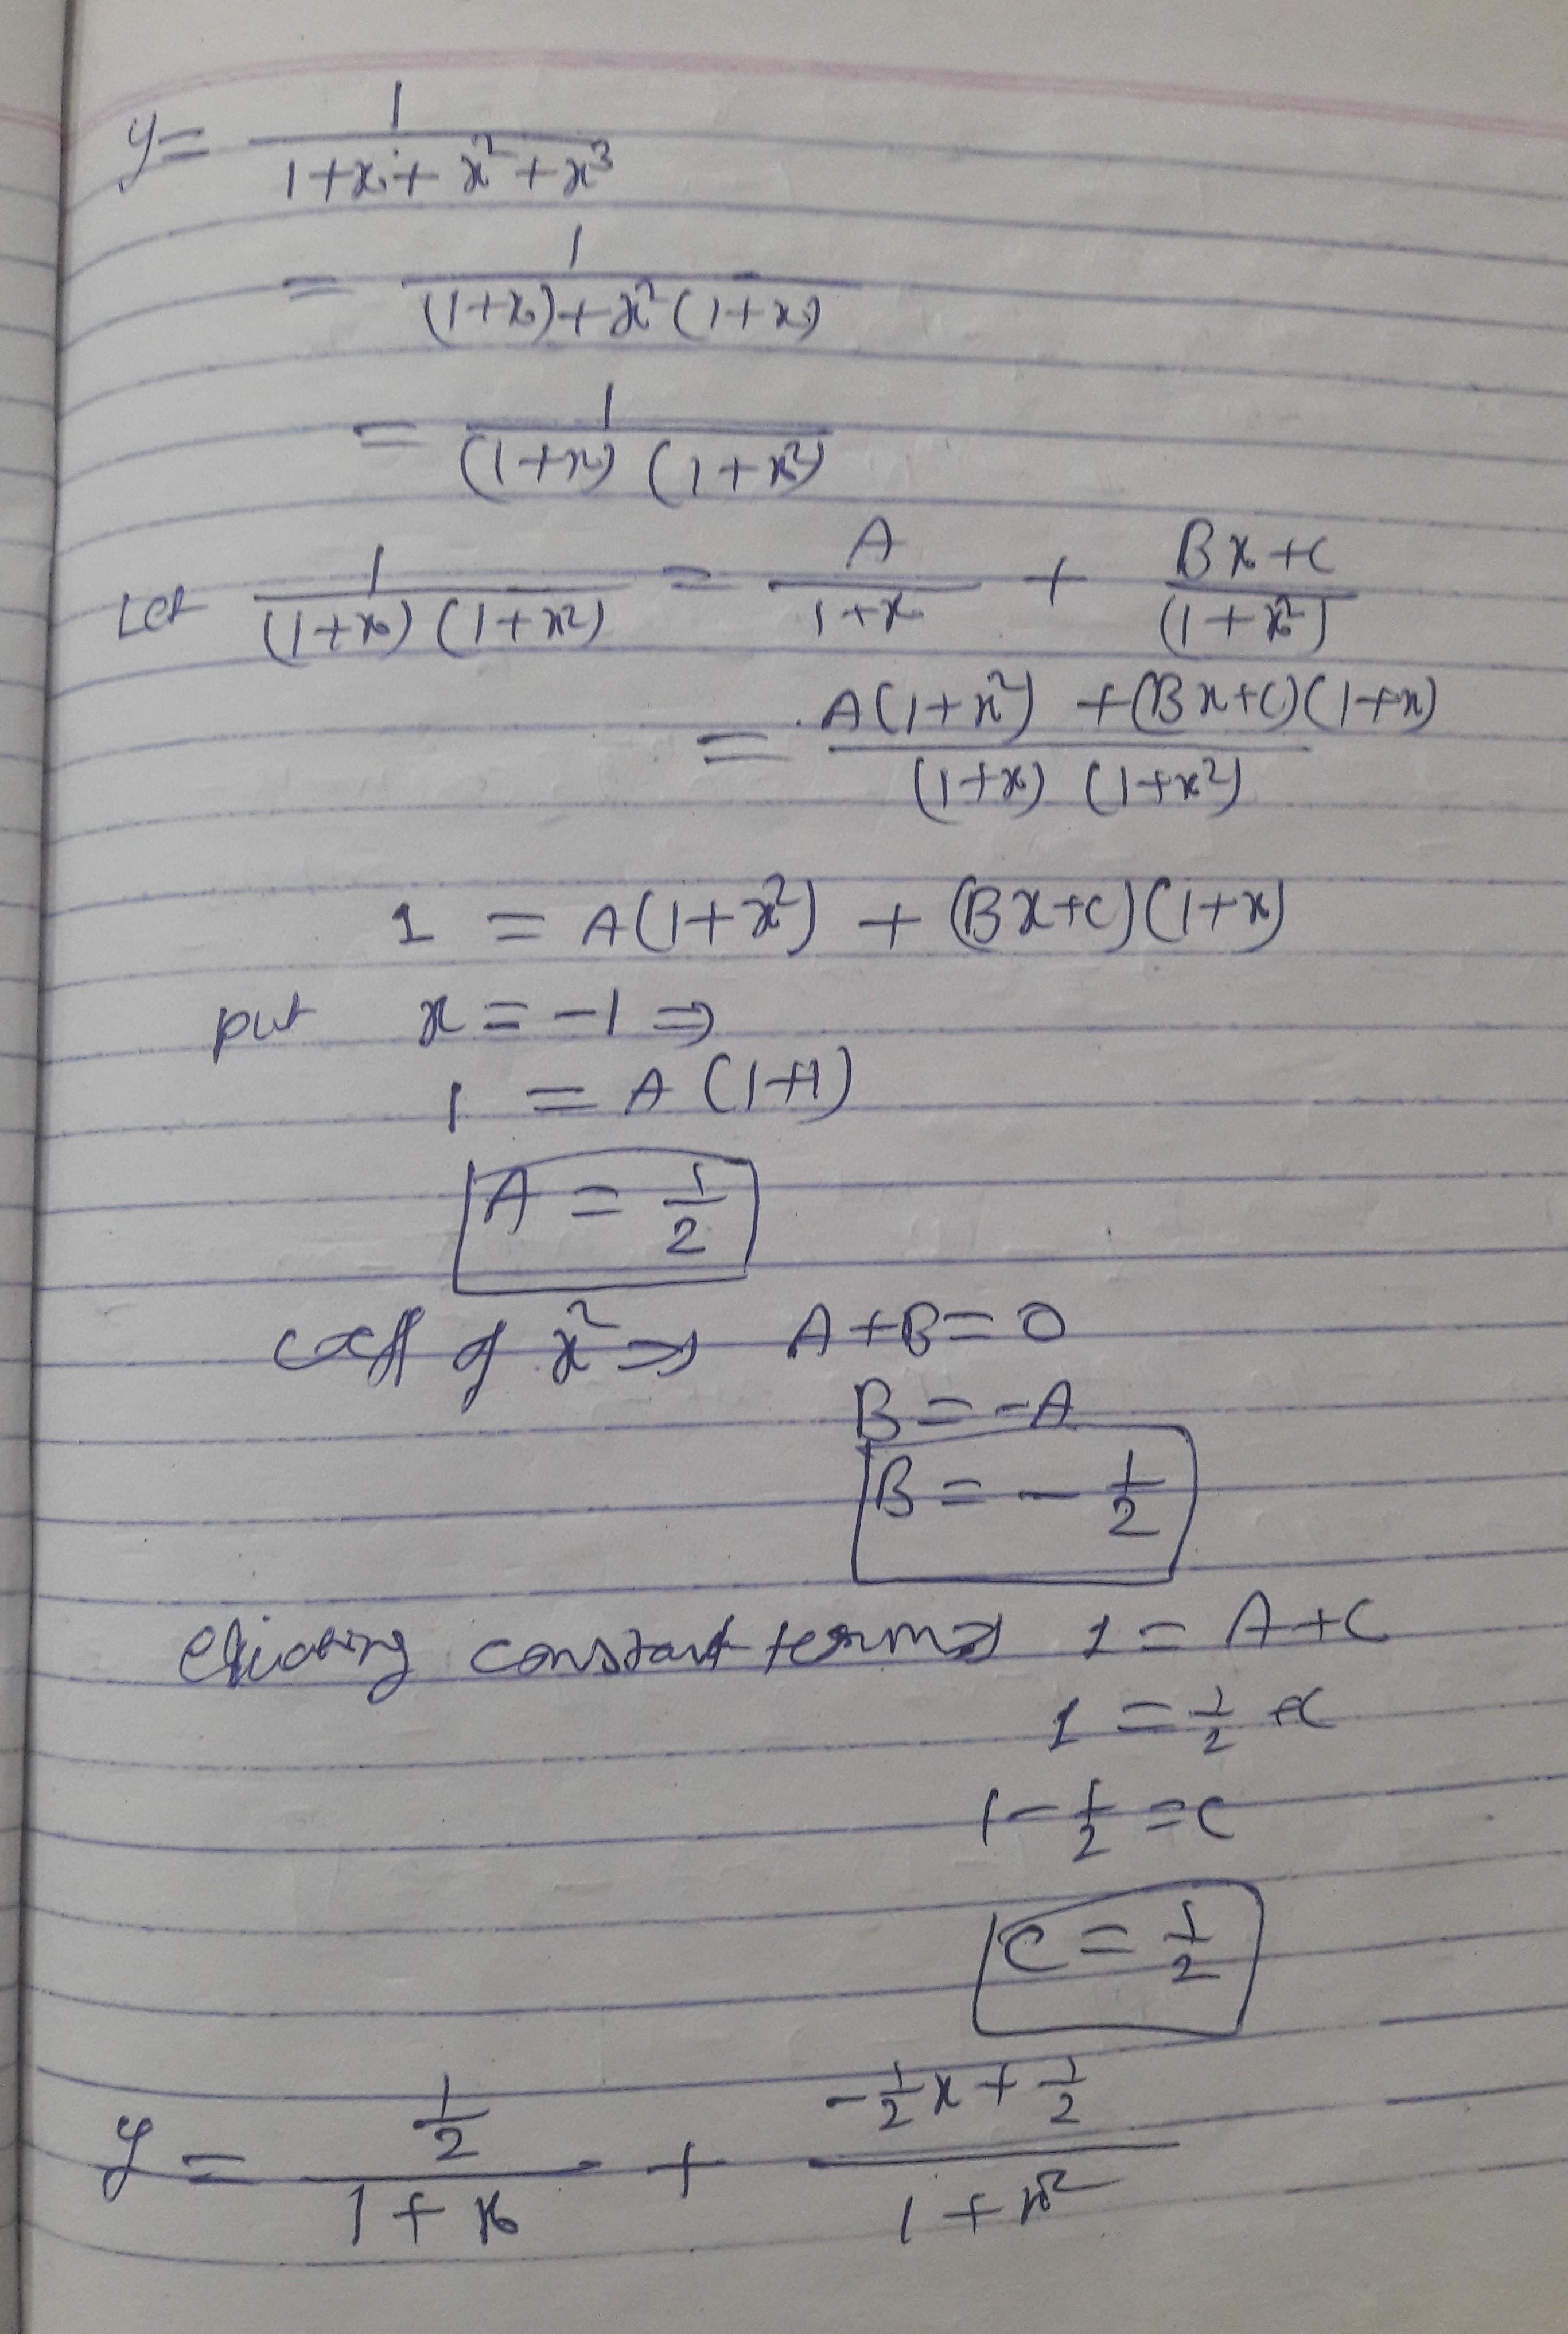 y = 1/(1+x+x²+x³)
= 1/((1+x)+x²(1+x))
= 1/((1+x)(1+x²))
Let 1/((1+x)(1+x²)) = A/(1+x) + (Bx+C)/(1+x²)
= (A(1+x²)+(Bx+C)(1+x))/((1+x)(1+x²))
1 = A(1+x²) + (Bx+C)(1+x)
put x = -1 ⇒
1 = A(1+1)
A = 1/2
coeff of x² ⇒ A+B=0
B = -A
B = - 1/2
constant terms ⇒ 1 = A+C
1 = 1/2 + C
1 - 1/2 = C
C = 1/2
y = (1/2)/(1+x) + (-1/2 x + 1/2)/(1+x²)